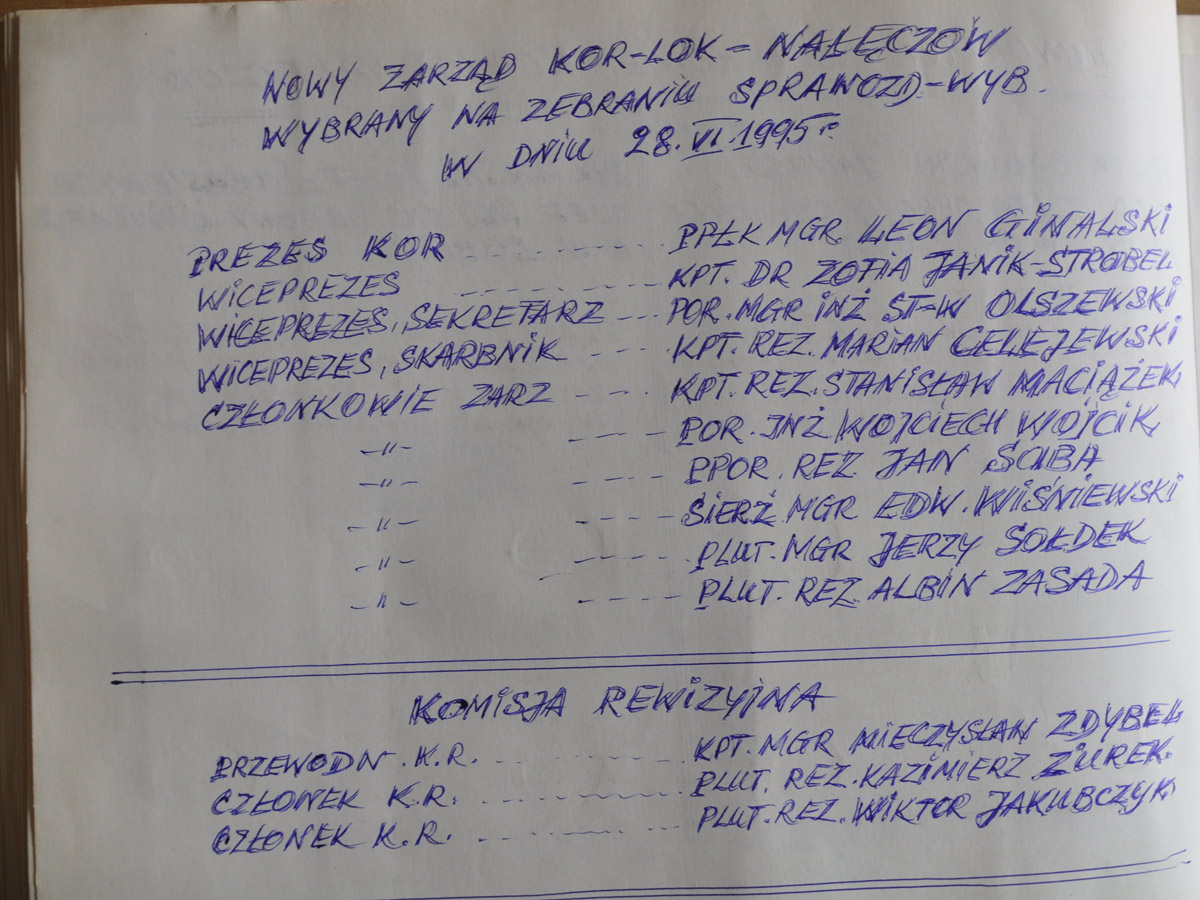 NOWY ZARZĄD KOR-LOK = NAŁĘCZÓW
WYBRANY NA ZEBRANIU SPRAWOZD-WYB.
W DNIU 28.VI.1995 r.
PREZES KOR ------ PPŁK MGR LEON GINALSKI
WICEPREZES ------ KPT. DR ZOFIA JANIK-STROBEL
WICEPREZES, SEKRETARZ --- POR. MGR INŻ ST-W OLSZEWSKI
WICEPREZES, SKARBNIK --- KPT. REZ. MARIAN CELEJEWSKI
CZŁONKOWIE ZARZ ---- KPT. REZ. STANISŁAW MACIĄŻEK
-"- ---- POR. INŻ WOJCIECH WÓJCIK
-"- ---- PPOR. REZ. JAN ŚCIBA
-"- ---- SIERŻ MGR EDW. WIŚNIEWSKI
-"- ---- PLUT. MGR JERZY SOŁDEK
-"- ---- PLUT. REZ. ALBIN ZASADA
KOMISJA REWIZYJNA
PRZEWODN. K.R. ------ KPT. MGR MIECZYSŁAW ZDYBEL
CZŁONEK K.R. ------ PLUT. REZ. KAZIMIERZ ŻUREK.
CZŁONEK K.R. ------ PLUT. REZ. WIKTOR JAKUBCZYK